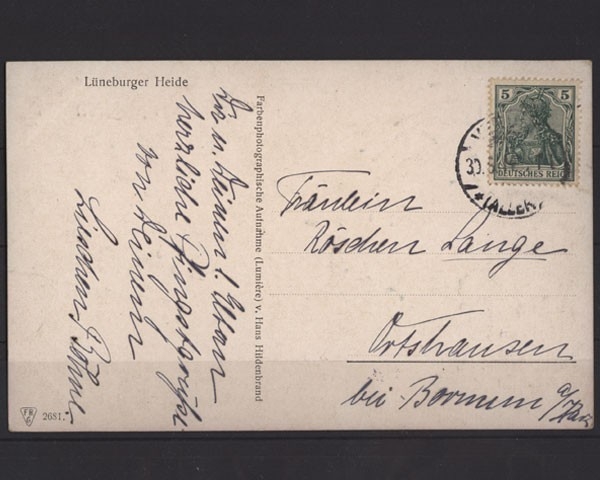 Lüneburger Heide
Dir u. Deinen l. Eltern
herzliche Pfingstgrüße
von Deinem
Linchen
Farbenphotographische Aufnahme (Lumière) v. Hans Hildenbrand
2681.
5 5
DEUTSCHES REICH
30.
(ALLER)
Fräulein
Röschen Lange
Ortshausen
bei Bornum a/Harz